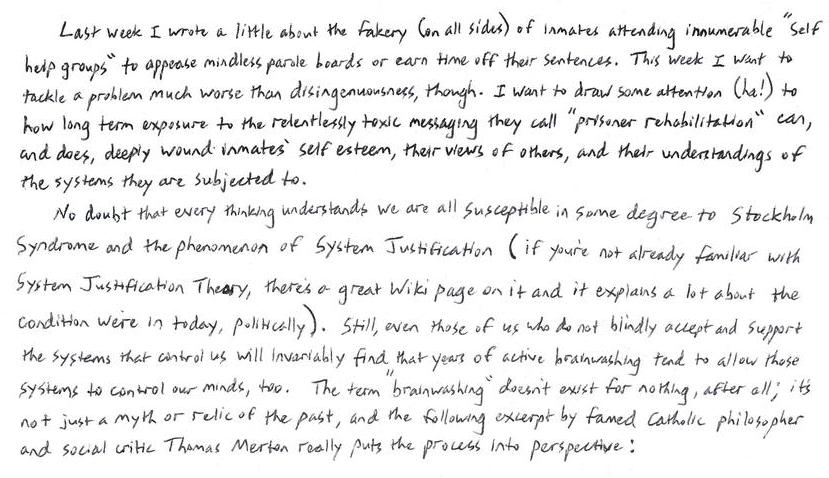 Last week I wrote a little about the fakery (on all sides) of inmates attending innumerable "self
help groups" to appease mindless parole boards or earn time off their sentences. This week I want to
tackle a problem much worse than disingenuousness, though. I want to draw some attention (ha!) to
how long term exposure to the relentlessly toxic messaging they call "prisoner rehabilitation" can,
and does, deeply wound inmates' self esteem, their views of others, and their understandings of
the systems they are subjected to.
No doubt that every thinking understands we are all susceptible in some degree to Stockholm
Syndrome and the phenomenon of System Justification (if you're not already familiar with
System Justification Theory, there's a great Wiki page on it and it explains a lot about the
condition we're in today, politically). Still, even those of us who do not blindly accept and support
the systems that control us will invariably find that years of active brainwashing tend to allow those
systems to control our minds, too. The term "brainwashing" doesn't exist for nothing, after all; it's
not just a myth or relic of the past, and the following excerpt by famed Catholic philosopher
and social critic Thomas Merton really puts the process into perspective: